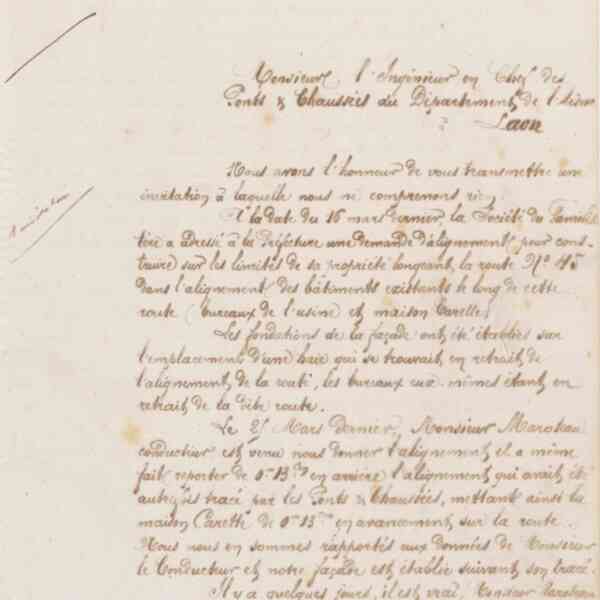 Monsieur l'Ingénieur en Chef des
Ponts & Chaussées du Département de l'Aisne
Laon
Nous avons l'honneur de vous transmettre une
invitation à laquelle nous ne comprenons rien.
A la date du 16 mars dernier, la Société du Familis
tère a adressé à la Préfecture une demande d'alignement pour cons-
truire sur les limites de sa propriété longeant la route Nº 45
dans l'alignement des bâtiments existants le long de cette
route (bureaux de l'usine et maison
Les fondations de la façade ont été établies sur
l'emplacement d'une haie qui se trouvait en retrait de
l'alignement de la route, les bureaux eux mêmes étant en
retrait de la dite route.
Le Mars dernier, Monsieur
conducteur est venu nous donner l'alignement et a même
fait reporter de 0m 13 en arrière l'alignement qui avait été
autrefois tracé par les Ponts & Chaussées, mettant ainsi la
maison de 0m 13 en avancement sur la route.
Nous nous en sommes rapportés aux données de Monsieur
le Conducteur et notre façade est établie suivant son tracé.
Il y a quelques jours, il est vrai, Monsieur